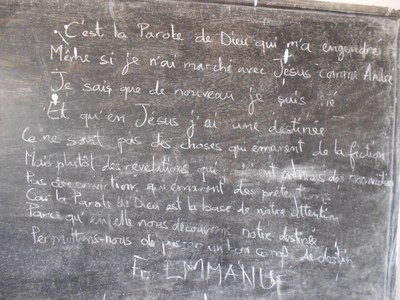 C'est la Parole de Dieu qui m'a engendré
Même si je n'ai marché avec Jésus comme André
Je sais que de nouveau je suis né
Et qu'en Jésus j'ai une destinée
Ce ne sont pas des choses qui émanent de la fiction
Mais plutôt des révélations qui
Pas des conviction qui émanent des
Car la Parole de Dieu est la base de notre attention
Parce qu'en elle nous découvrons notre destinée
Permettons-nous de un bon de destin
Fr EMMANUEL